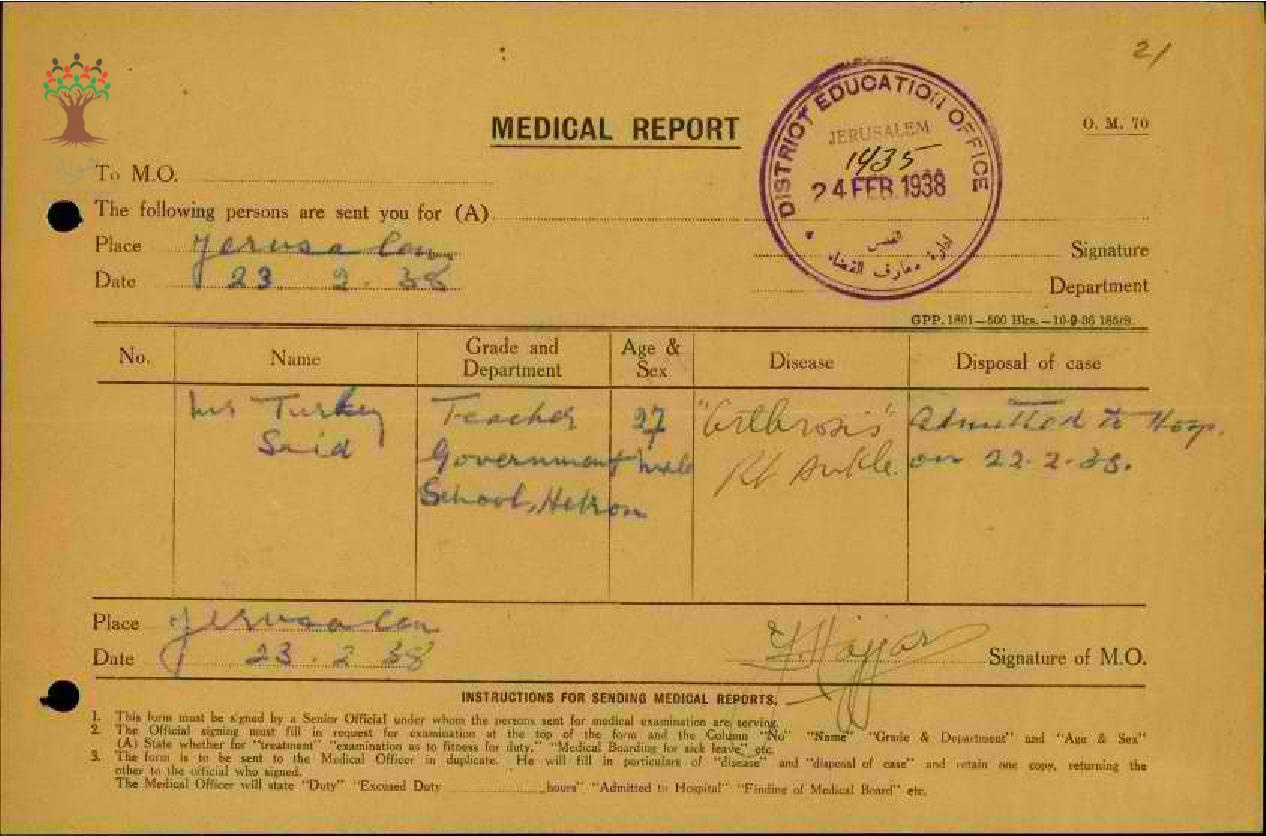 21
MEDICAL REPORT
O. M. 70
DISTRICT EDUCATION OFFICE
JERUSALEM
1435
24 FEB 1938
القدس
ادارة معارف القضاء
To M.O.
The following persons are sent you for (A)
Place Jerusalem
Signature
Date 23. 2. 38
Department
GPP. 1801—500 Bks.—10-9-36
No. Name Grade and Department Age & Sex Disease Disposal of case
Mr Turkey Teacher 27 "Arthrosis" Admitted to Hosp.
Said Government male Rt Ankle. on 22.2.38.
School, Hebron
Place Jerusalem
Date 23.2 38 Signature of M.O.
INSTRUCTIONS FOR SENDING MEDICAL REPORTS.
1. This form must be signed by a Senior Official under whom the persons sent for medical examination are serving.
2. The Official signing must fill in request for examination at the top of the form and the Column "No" "Name" "Grade & Department" and "Age & Sex"
(A) State whether for "treatment" "examination as to fitness for duty," "Medical Boarding for sick leave" etc.
3. The form is to be sent to the Medical Officer in duplicate. He will fill in particulars of "disease" and "disposal of case" and retain one copy, returning the
other to the official who signed.
The Medical Officer will state "Duty" "Excused Duty hours" "Admitted to Hospital" "Finding of Medical Board" etc.